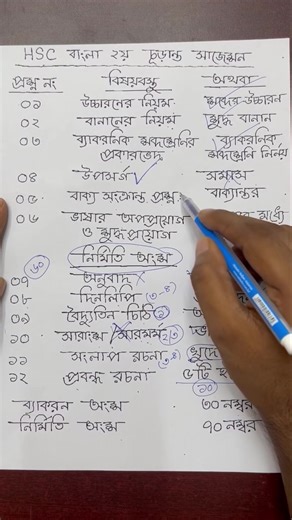 HSC বাংলা ২য় চূড়ান্ত সাজেশন
প্রশ্ন নং বিষয়বস্তু অথবা
০১ উচ্চারনের নিয়ম শব্দের উচ্চারন
০২ বানানের নিয়ম শুদ্ধ বানান
০৩ ব্যাকরনিক শব্দশ্রেনির প্রকারভেদ ব্যাকরনিক শব্দশ্রেনি নির্নয়
০৪ উপসর্গ সমাস
০৫ বাক্য সংক্রান্ত প্রশ্ন বাক্যান্তর
০৬ ভাষার অপপ্রয়োগ ও শুদ্ধ প্রয়োগ মধ্যে
৬০ নির্মিতি অংশ
০৭ অনুবাদ
০৮ দিনলিপি (৩-৪)
০৯ বৈদ্যুতিন চিঠি
১০ সারাংশ সারমর্ম ২/৩
১১ সংলাপ রচনা (৩-৪) খুদে
১২ প্রবন্ধ রচনা ৫টি
১০
ব্যাকরন অংশ ৩০ নম্বর
নির্মিতি অংশ ৭০ নম্বর